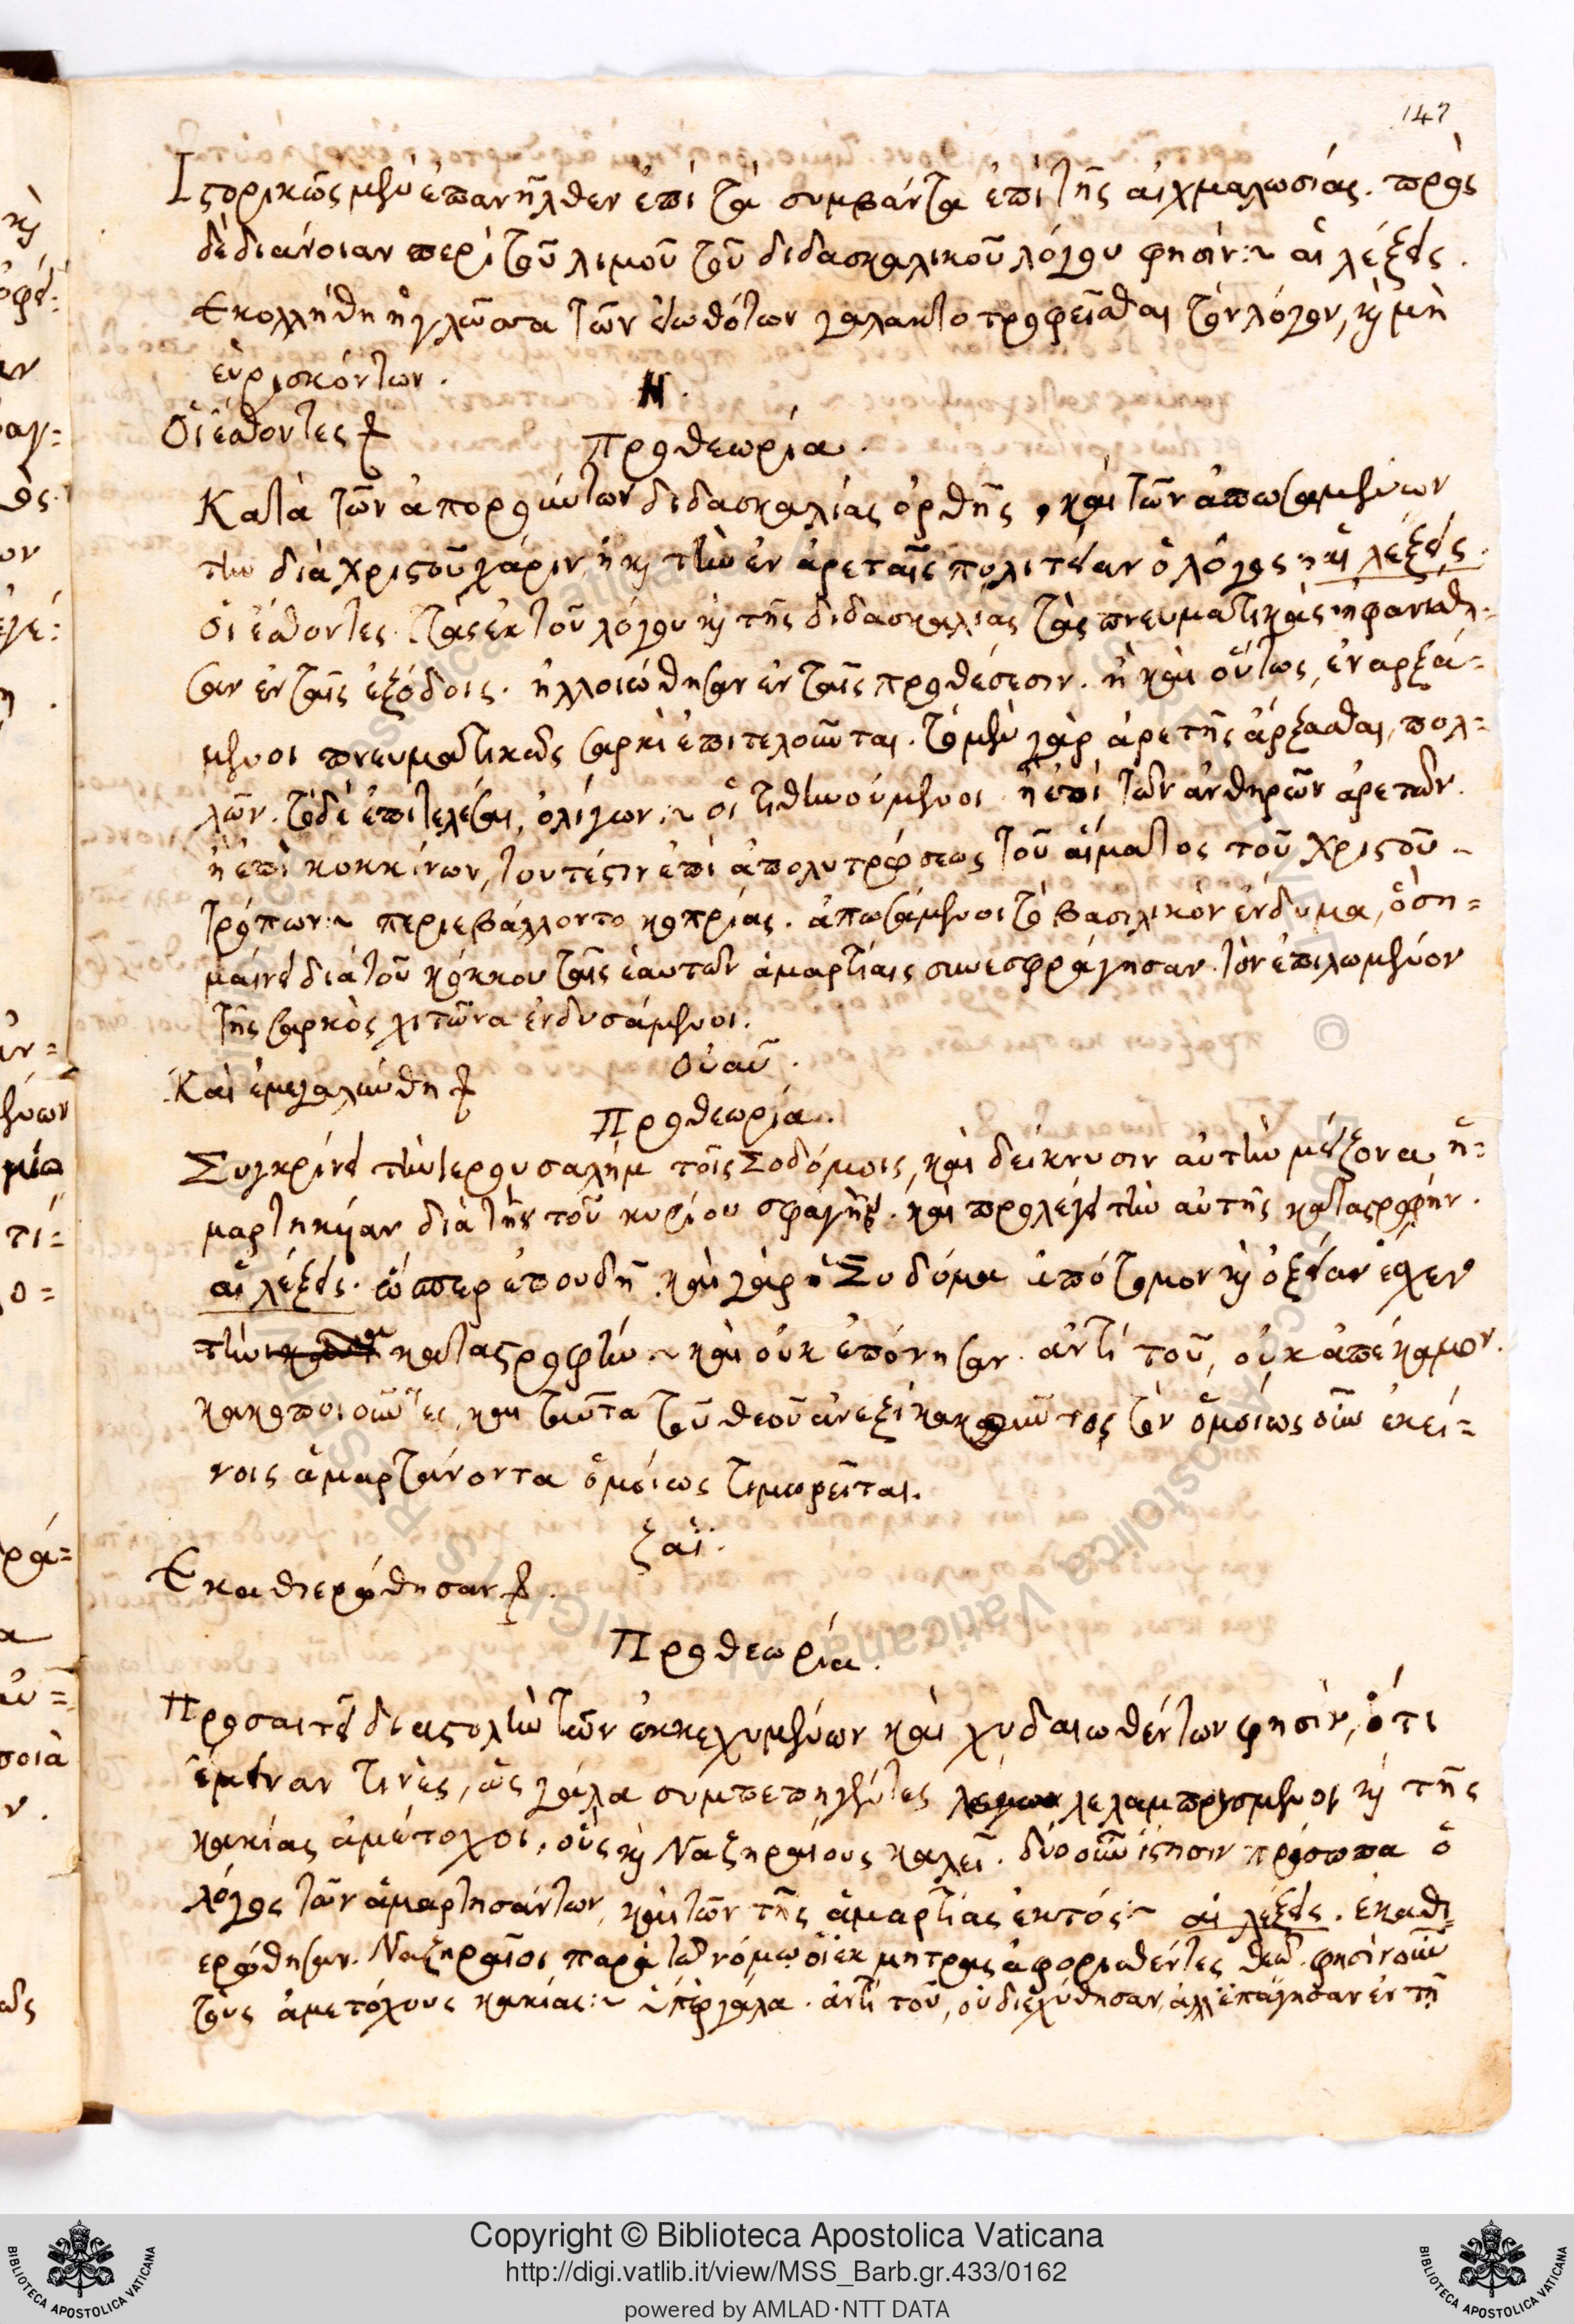 147
Ἱστορικῶς μὲν ἐπανῆλθεν ἐπὶ τὰ συμβάντα ἐπὶ τῆς αἰχμαλωσίας. πρὸς
δὲ διάνοιαν περὶ τοῦ λιμοῦ τοῦ διδασκαλικοῦ λόγου φησίν:~ αἱ λέξεις.
Ἐκολλήθη ἡ γλῶσσα τῶν εἰωθότων γαλακτοτροφεῖσθαι τὸν λόγον, καὶ μὴ
εὑρισκόντων.
Η.
Οἱ ἔσθοντες
Προθεωρία.
Κατὰ τῶν ἀπορούντων διδασκαλίας ὀρθῆς, καὶ τῶν ἀπωσαμένων
τὴν διὰ Χριστοῦ χάριν, ἢ καὶ τὴν ἐν ἀρεταῖς πολιτείαν ὁ λόγος:~ αἱ λέξεις.
οἱ ἔσθοντες. τὰς ἐκ τοῦ λόγου καὶ τῆς διδασκαλίας τὰς πνευματικὰς. ἠφανίσθη=
σαν ἐν ταῖς ἐξόδοις. ἠλλοιώθησαν ἐν ταῖς προθέσεσιν. ἢ καὶ οὕτως, ἐναρξά=
μενοι πνευματικῶς σαρκὶ ἐπιτελοῦνται. τὸ μὲν γὰρ ἀρετῆς ἄρξασθαι, πολ=
λῶν. τὸ δὲ ἐπιτελέσαι, ὀλίγων:~ οἱ τιθηνούμενοι. ἢ ἐπὶ τῶν ἀνθηρῶν ἀρετῶν.
ἢ ἐπὶ κοκκίνων, τουτέστιν ἐπὶ ἀπολυτρώσεως τοῦ αἵματος τοῦ Χριστοῦ
τρόπων:~ περιεβάλλοντο κοπρίας. ἀπωσάμενοι τὸ βασιλικὸν ἔνδυμα, ὃ ση=
μαίνει διὰ τοῦ κόκκου ταῖς ἑαυτῶν ἁμαρτίαις συνεσφράγησαν. τὸν
τῆς σαρκὸς χιτῶνα ἐνδυσάμενοι.
Οὐαῦ.
Καὶ ἐμεγαλύνθη
Προθεωρία.
Συγκρίνει τὴν Ἱερουσαλὴμ τοῖς Σοδόμοις, καὶ δείκνυσιν αὐτὴν μείζονα ἡ=
μαρτηκυῖαν διὰ τῆς τοῦ κυρίου σφαγῆς. καὶ προλέγει τὴν αὐτῆς καταστροφήν.
αἱ λέξεις. ὥσπερ σπουδῇ. καὶ γὰρ ἡ Σοδόμα ἀπότομον καὶ ὀξεῖαν ἔσχεν
τὴν καταστροφὴν:~ καὶ οὐκ ἐπόνησαν. ἀντὶ τοῦ, οὐκ ἀπέκαμον.
κακοποιοῦντες, καὶ ταῦτα τοῦ θεοῦ ἀνεξικακοῦντος τὸν ὁμοίως οὖν ἐκεί=
νοις ἁμαρτάνοντα ὁμοίως τιμωρεῖται.
ζαΐ.
Ἐκαθιερώθησαν
Προθεωρία.
διαστολὴν τῶν ἐκκεχυμένων καὶ χυδαιωθέντων φησὶν, ὅτι
ἔμειναν τινὲς, ὡς γάλα συμπεπηγότες λελαμπρυσμένοι καὶ τῆς
κακίας ἀμέτοχοι, οὓς καὶ Ναζηραίους καλεῖ. δύο οὖν ἵστησιν πρόσωπα ὁ
λόγος τῶν ἁμαρτησάντων, καὶ τῶν τῆς ἁμαρτίας ἐκτός:~ αἱ λέξεις. ἐκαθι=
ερώθησαν. Ναζηραῖοι παρὰ τῷ νόμῳ οἱ ἐκ μήτρας ἀφορισθέντες θεῷ. φησὶν οὖν
τοὺς ἀμετόχους κακίας:~ ὑπὲρ γάλα. ἀντὶ τοῦ, οὐ διεχύθησαν, ἀλλ' ἐπάγησαν ἐν τῇ
Copyright © Biblioteca Apostolica Vaticana
http://digi.vatlib.it/view/MSS_Barb.gr.433/0162
powered by AMLAD·NTT DATA
BIBLIOTECA APOSTOLICA VATICANA
BIBLIOTECA APOSTOLICA VATICANA